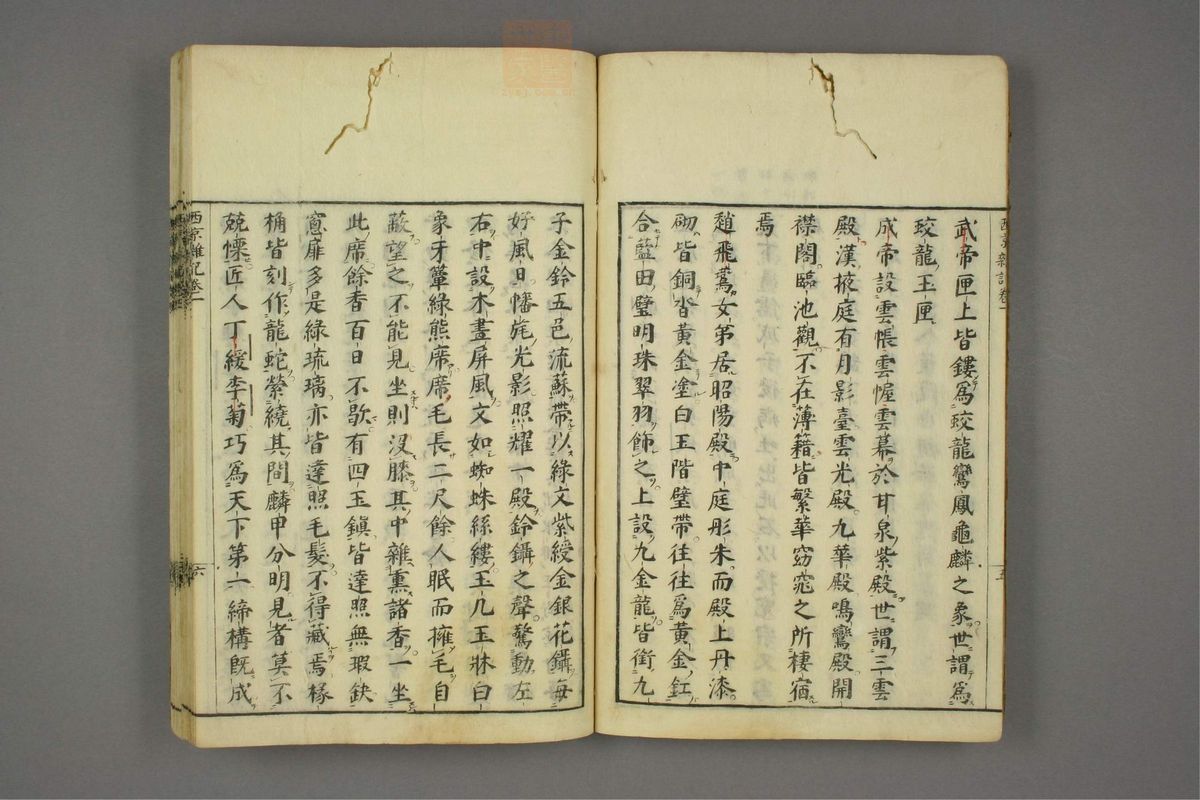 武帝匣上皆鏤爲蛟龍鸞鳳龜麟之象世謂爲
蛟龍玉匣
成帝設雲帳雲幄雲幕於甘泉紫殿世謂三雲
殿漢掖庭有月影臺雲光殿九華殿鳴鸞殿開
襟閣臨池觀不在薄籍皆繁華窈窕之所棲宿
焉
趙飛鷰女弟居昭陽殿中庭彤朱而殿上丹漆
砌皆銅沓黃金塗白玉階壁帶往往爲黃金釭
合藍田璧明珠翠羽飾之上設九金龍皆銜九
子金鈴五色流蘇帶以綠文紫綬金銀花鑷每
好風日幡旄光影照耀一殿鈴鑷之聲驚動左
右中設木畫屏風文如蜘蛛絲縷玉几玉牀白
象牙簟綠熊席席毛長二尺餘人眠而擁毛自
蔽望之不能見坐則沒膝其中雜熏諸香一坐
此席餘香百日不歇有四玉鎭皆達照無瑕缺
窻扉多是綠琉璃亦皆達照毛髮不得藏焉椽
桷皆刻作龍蛇縈繞其間麟甲分明見者莫不
兢慄匠人丁緩李菊巧爲天下第一締構既成
西京雜記卷一
六